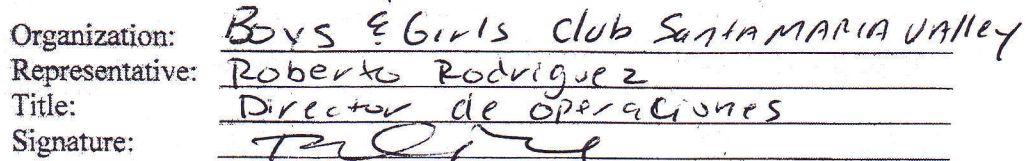 Organization: Boys & Girls Club Santa MARIA Valley
Representative: Roberto Rodriguez
Title: Director de operaciones
Signature: